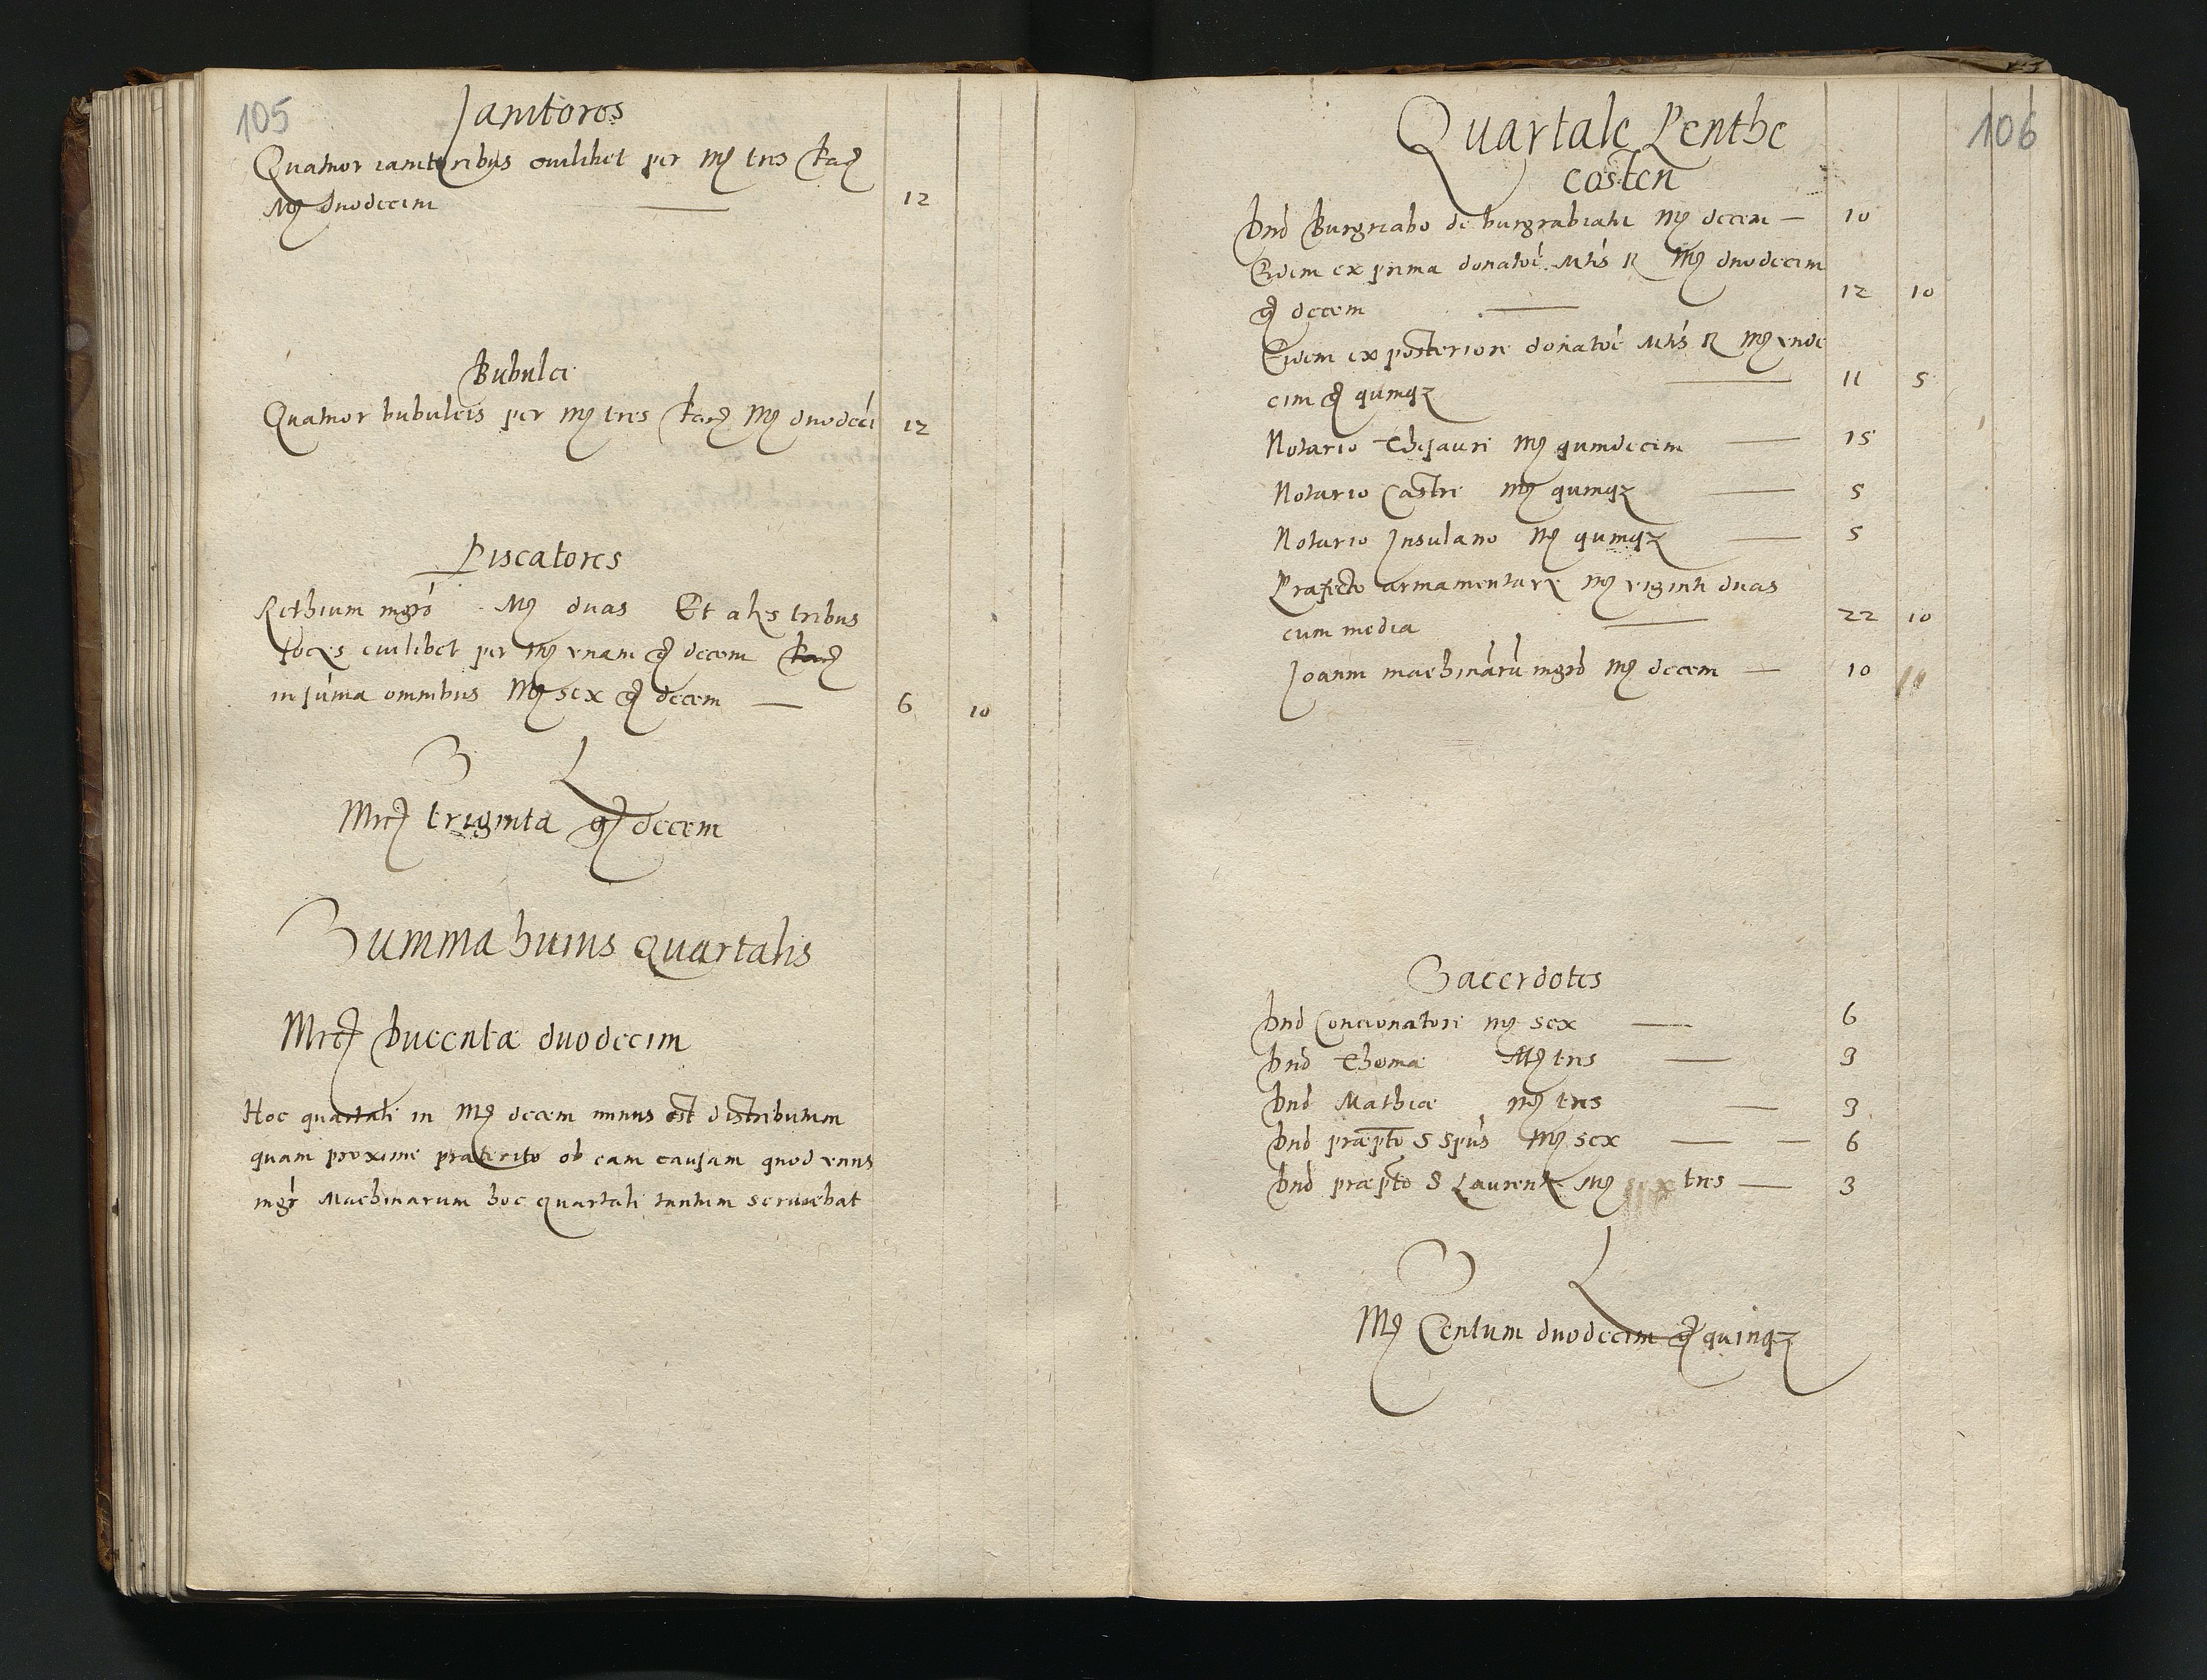 105
Janitores
Quatuor ianitoribus cuilibet per mrc tres facit
Mrc duodecim 12
Bubulci
Quatuor bubulcis per mrc tres facit Mrc duodeci 12
Piscatores
Rethium mgro Mrc duas Et alijs tribus
socijs cuilibet per mrc vnam gr decem
in suma omnibus Mrc sex gr decem 6 10
S L
Mrc triginta gr decem
Summa huius Quartalis
Mrc Ducentæ duodecim
Hoc quartali in Mrc decem minus est distributum
quam proxime præterito ob eam causam quod vnus
mgr Machinarum hoc quartali tantum seruiebat
106
Quartale Penthe
costen
Dno Burgrabio de burgrabiatu Mrc decem 10
Eidem ex prima donatoe Mtis R Mrc duodecim
gr decem 12 10
Eidem ex posteriore donatoe Mtis R Mrc vnde
cim gr quinqz 11 5
Notario Thesauri Mrc quindecim 15
Notario Castri Mrc quinqz 5
Notario Insulano Mrc quinqz 5
Præfecto armamentarij Mrc viginti duas
cum media 22 10
Joanni machinaru mgro Mrc decem 10
Sacerdotes
Dno Concionatori Mrc sex 6
Dno Thomæ Mrc tres 3
Dno Mathiæ Mrc tres 3
Dno præpto S Spus Mrc sex 6
Dno præpto S Laurentij Mrc tres 3
S L
Mrc Centum duodecim gr quinqz